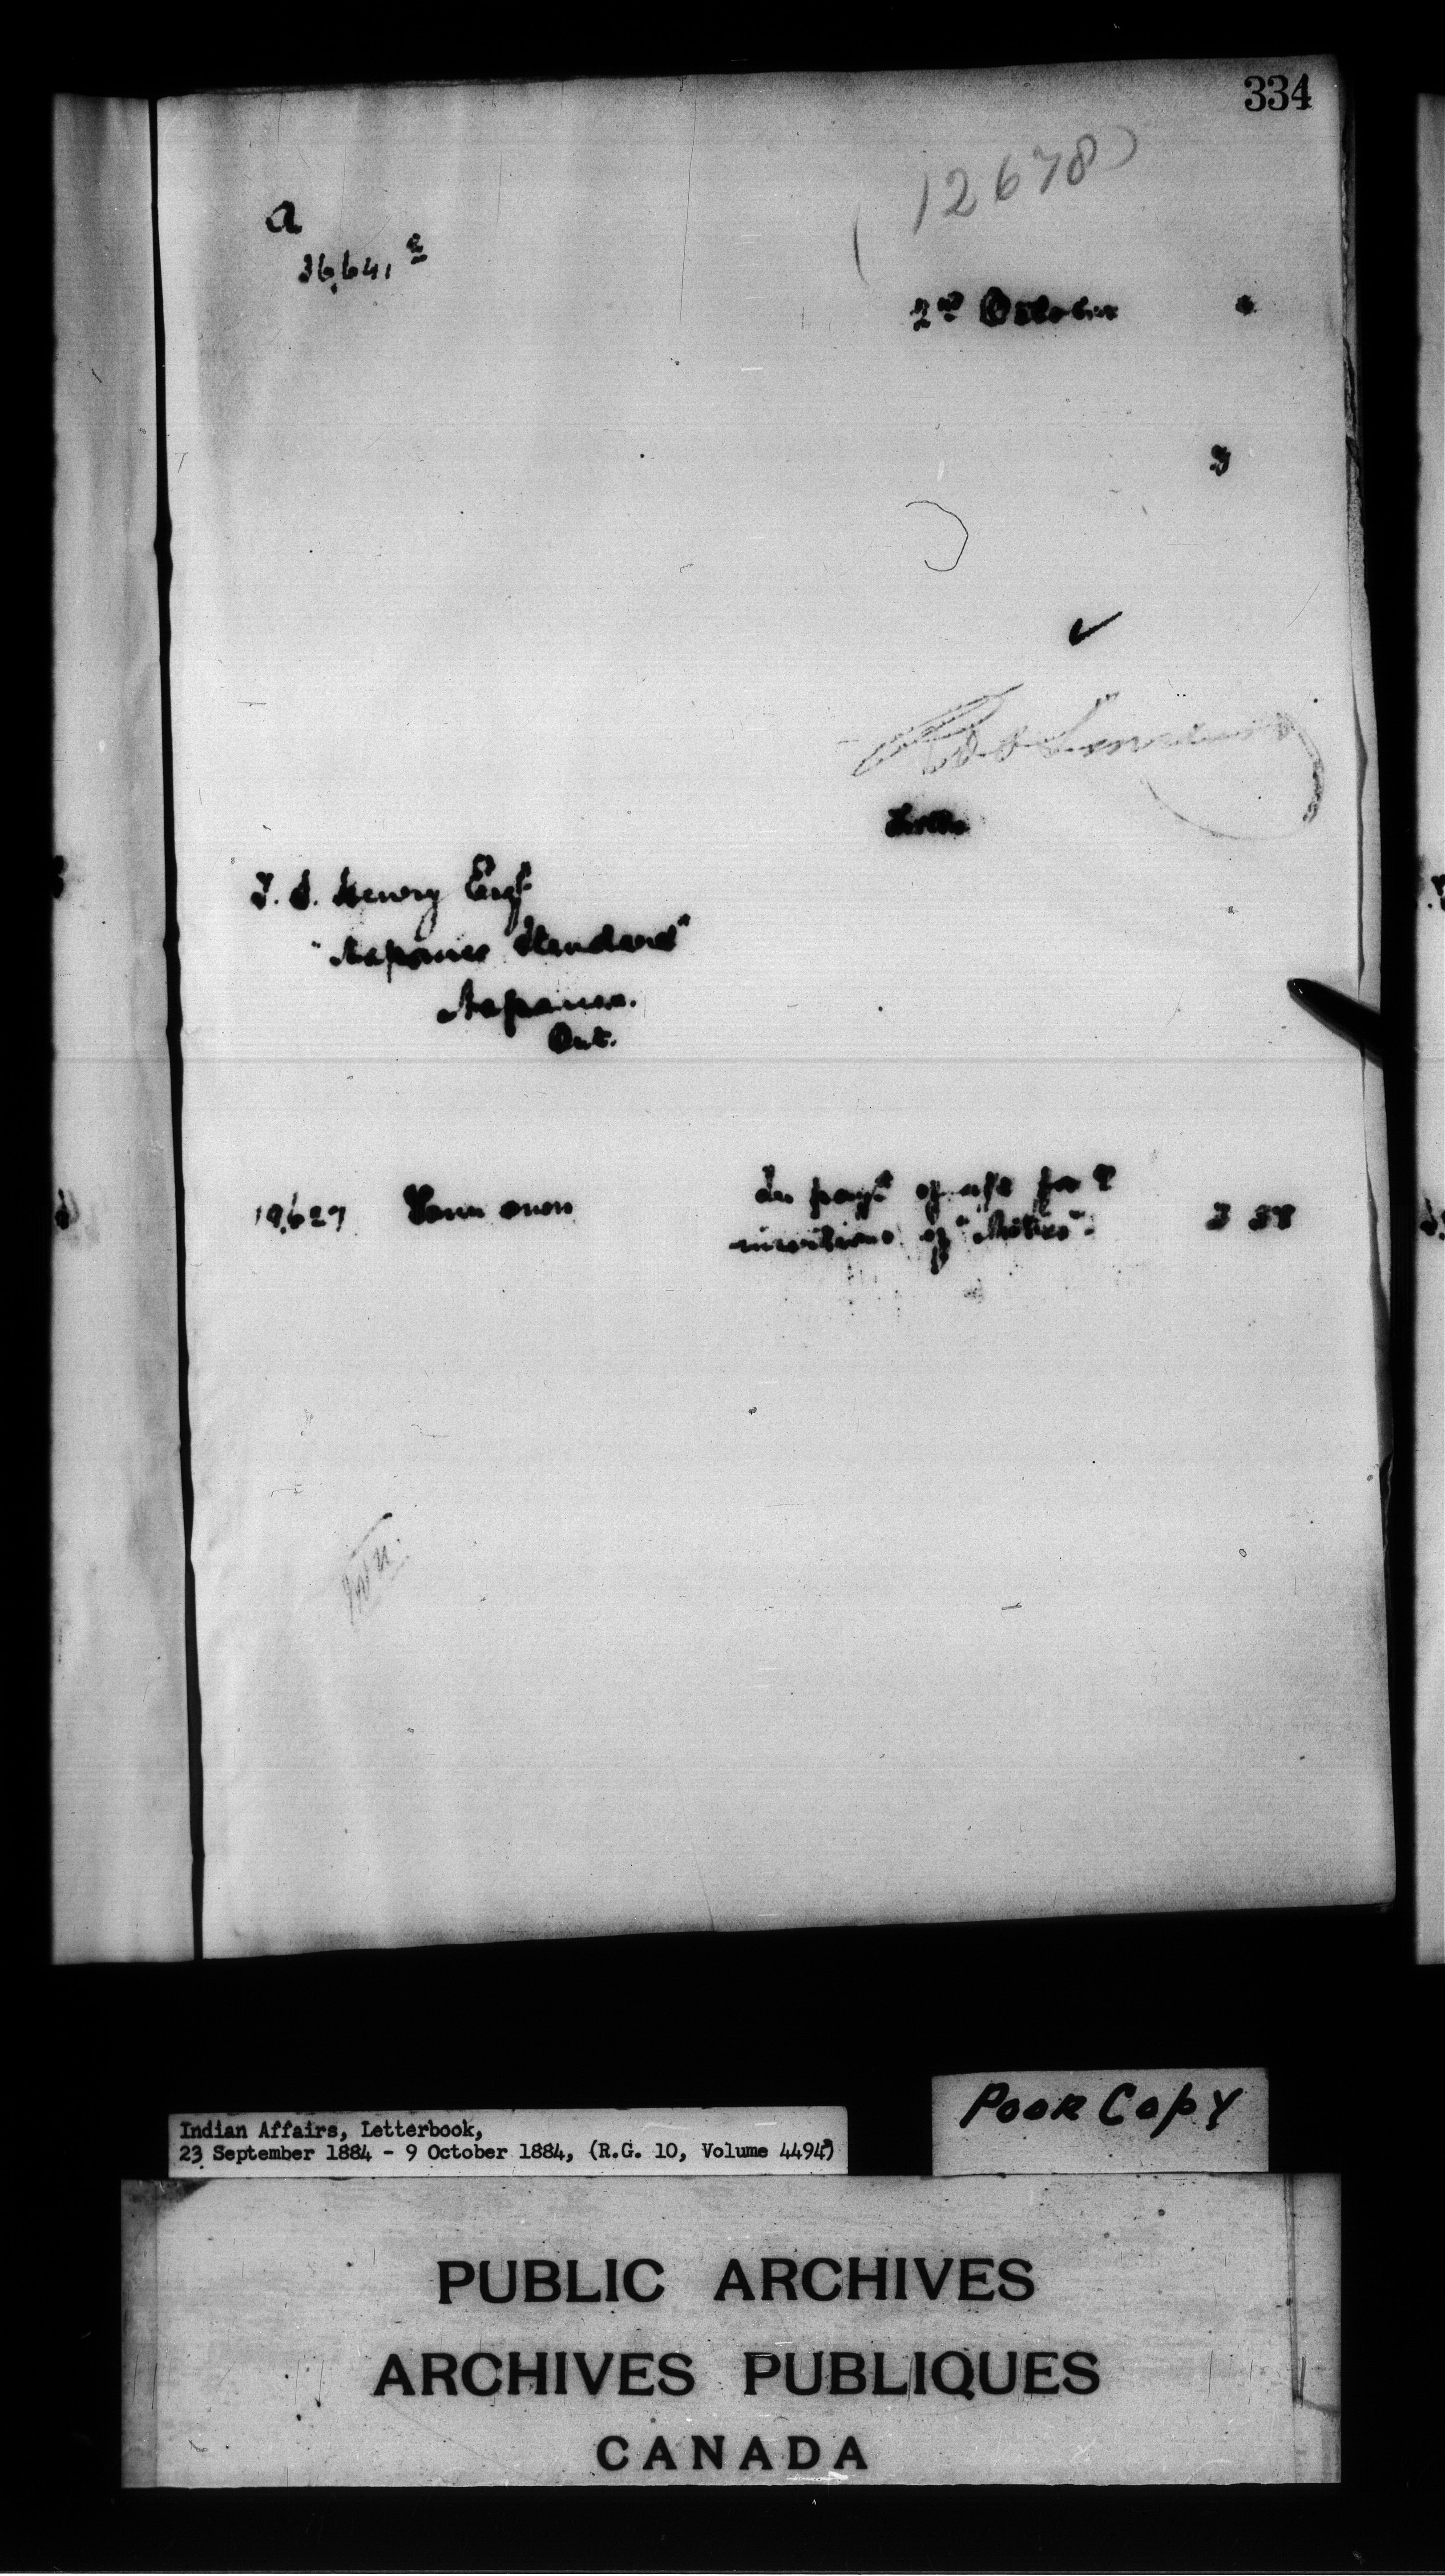 334
(12678)
a
36,641
2nd October 4
3
T. S. Henry Esq
"Napanee Standard"
Napanee.
Ont.
19,627 Your own In payt of a/c for 2 3 38
insertions of "Notice".
Indian Affairs, Letterbook,
23 September 1884 - 9 October 1884, (R.G. 10, Volume 4494)
POOR COPY
PUBLIC ARCHIVES
ARCHIVES PUBLIQUES
CANADA